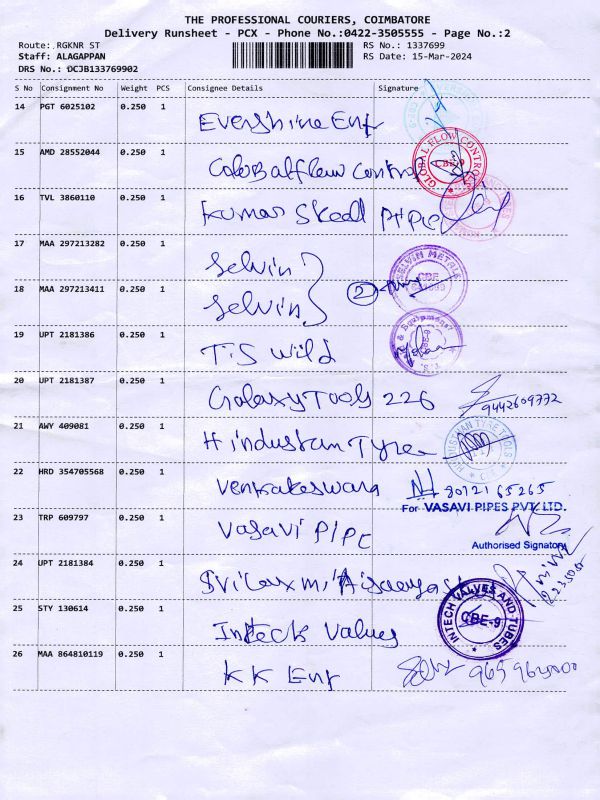 THE PROFESSIONAL COURIERS, COIMBATORE
Delivery Runsheet - PCX - Phone No.:0422-3505555 - Page No.:2
Route: RGKNR ST RS No.: 1337699
Staff: ALAGAPPAN RS Date: 15-Mar-2024
DRS No.: DCJB133769902
S No Consignment No Weight PCS Consignee Details Signature
14 PGT 6025102 0.250 1
Evershine Enf
15 AMD 28552044 0.250 1
GLOBAL FLOW CONTROLS
16 TVL 3860110 0.250 1
Kumar
17 MAA 297213282 0.250 1
Selvin
SELVIN METALS
CBE
18 MAA 297213411 0.250 1
Selvin 2
19 UPT 2181386 0.250 1
& Equipments
T.S
TIS Wild
20 UPT 2181387 0.250 1
Galaxy Tools 226 9442609772
21 AWY 409081 0.250 1
Hindustan Tyre
HINDUSTAN TYRE
22 HRD 354705568 0.250 1
Venkateswara 8012165265
For VASAVI PIPES PVT. LTD.
23 TRP 609797 0.250 1
Vasavi Pipe
Authorised Signatory
24 UPT 2181384 0.250 1
Sri Laxmi
25 STY 130614 0.250 1
INTECH VALVES AND TUBES
CBE-9
Inteck Values
26 MAA 864810119 0.250 1
KK Enf